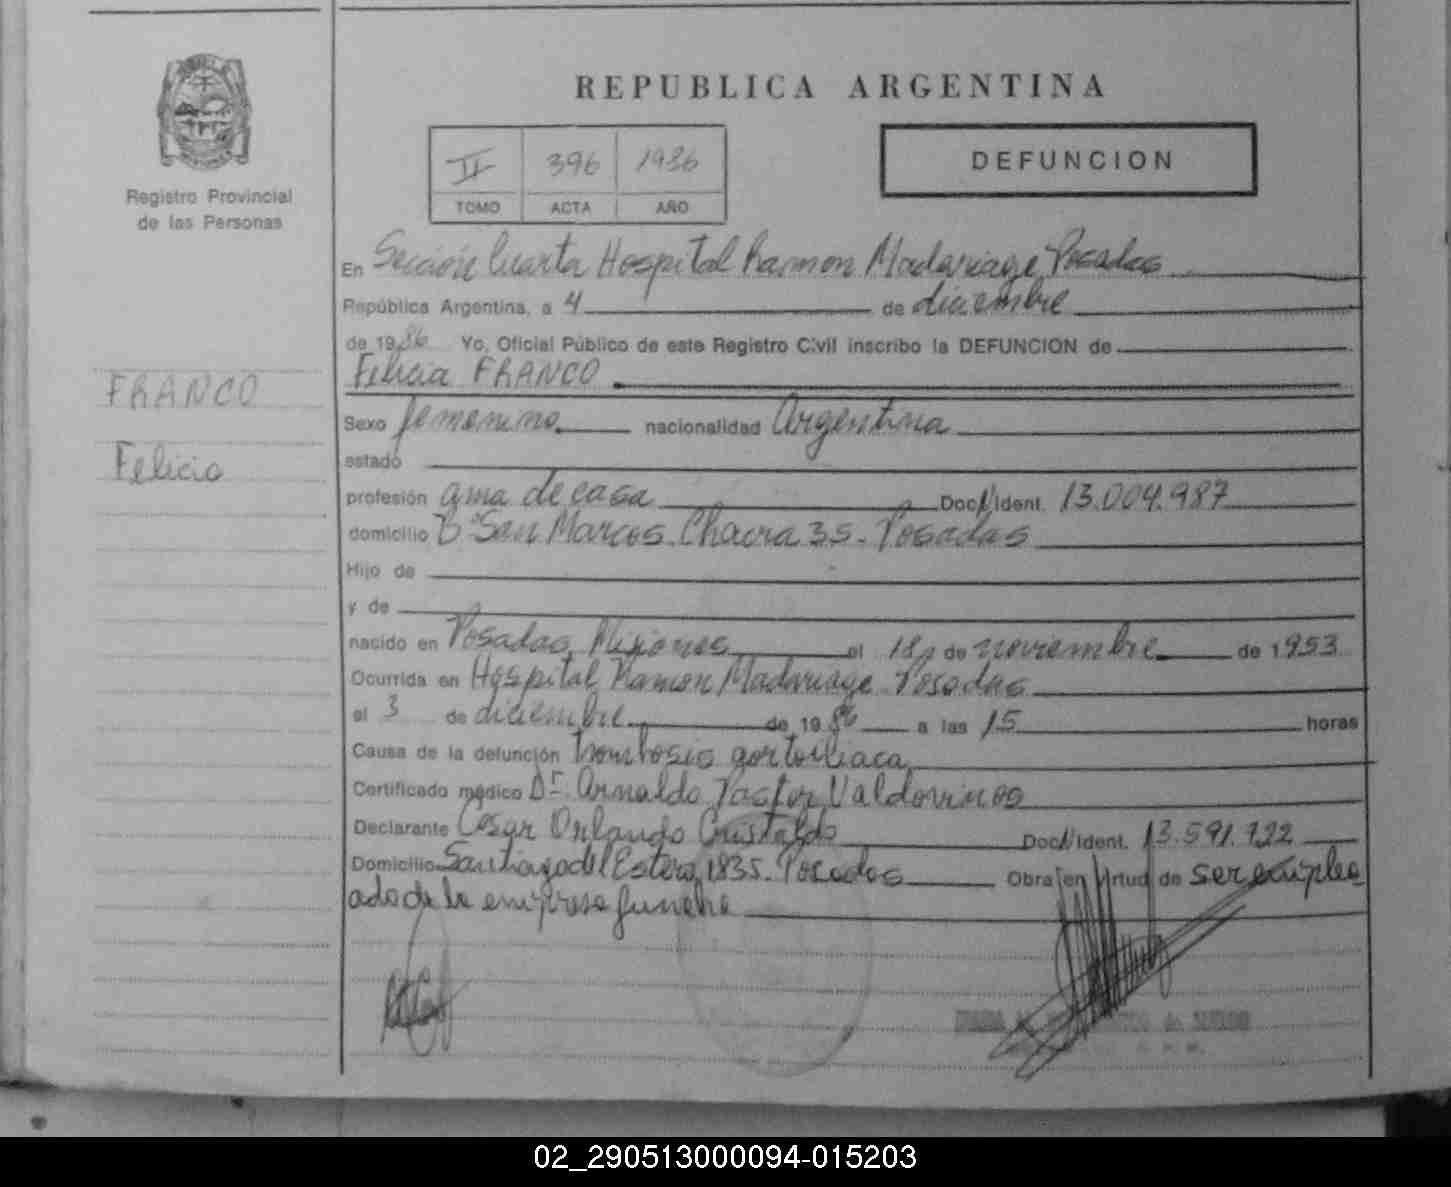 REPUBLICA ARGENTINA
II 396 1986
TOMO ACTA AÑO
DEFUNCION
Registro Provincial
de las Personas
FRANCO
Felicia
En Sección Cuarta Hospital Ramon Madariaga Posadas
República Argentina, a 4 de diciembre
de 1986 Yo, Oficial Público de este Registro Civil inscribo la DEFUNCION de
Felicia FRANCO
Sexo femenino nacionalidad Argentina
estado
profesión ama de casa Doc. Ident. 13.004.987
domicilio Bº San Marcos. Chacra 35. Posadas
Hijo de
y de
nacido en Posadas Misiones el 18 de noviembre de 1953
Ocurrida en Hospital Ramon Madariaga Posadas
el 3 de diciembre de 1986 a las 15 horas
Causa de la defunción trombosis aortoiliaca
Certificado médico Dr. Arnaldo Pastor Valdovinos
Declarante Cesar Orlando Cristaldo Doc. Ident. 13.591.722
Domicilio Santiago del Estero 1835. Posadas Obra en virtud de ser emple
ado de la empresa funebre
02_290513000094-015203